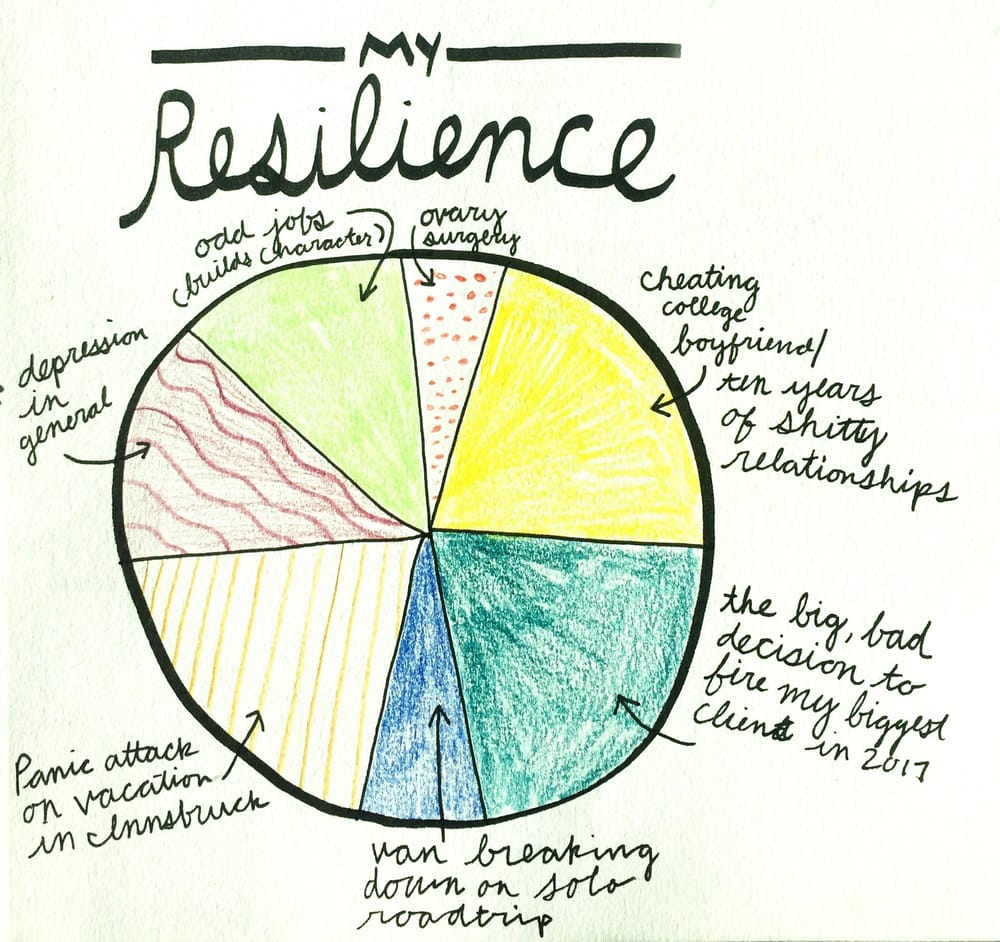 MY
Resilience
odd jobs
(builds character)
ovary
surgery
cheating
college
boyfriend/
ten years
of shitty
relationships
depression
in
general
the big, bad
decision to
fire my biggest
client in 2017
Panic attack
on vacation
in Innsbruck
van breaking
down on solo
roadtrip